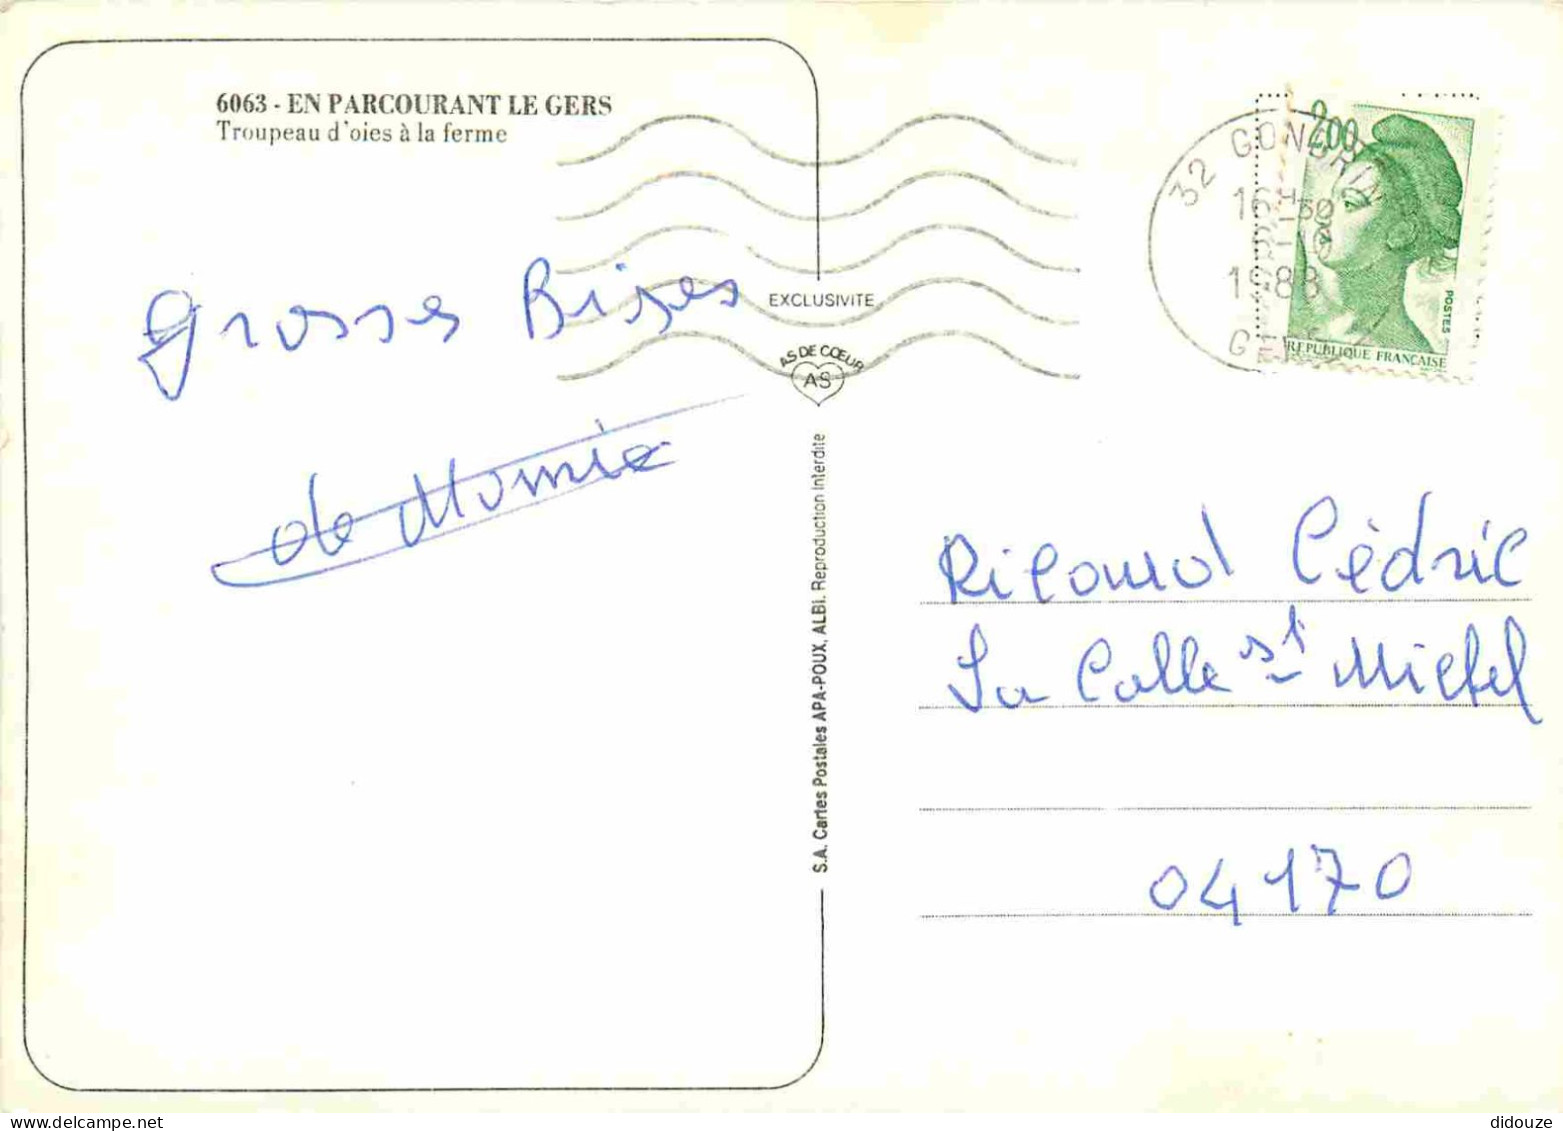 6063 - EN PARCOURANT LE GERS
Troupeau d'oies à la ferme
grosses Bises
de Mamie
EXCLUSIVITE
AS DE CŒUR
AS
S.A. Cartes Postales APA-POUX, ALBI. Reproduction Interdite
32 GONDRIN
16H30
1988
GERS
2,00
POSTES
REPUBLIQUE FRANÇAISE
Ricaud Cédric
La Colle st Michel
04170
didouze